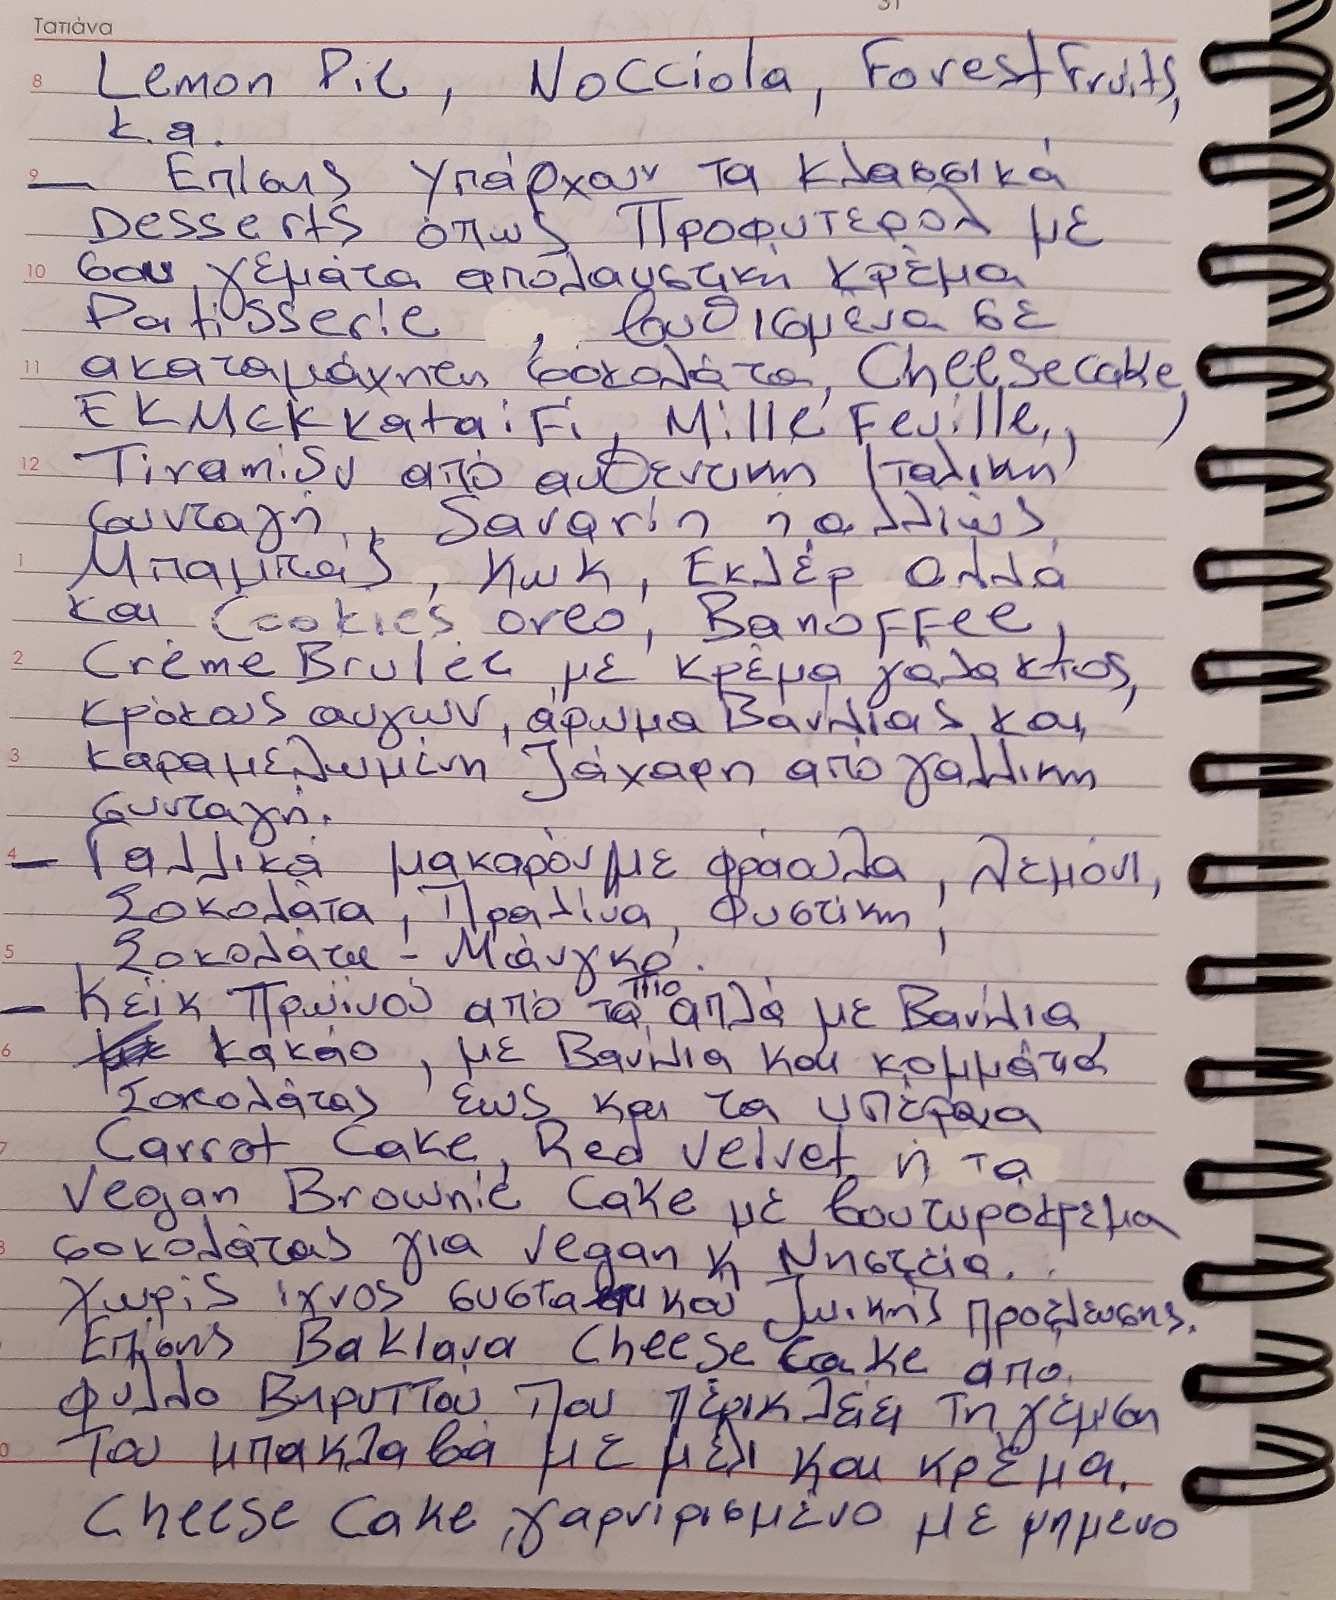 Τατιάνα
31
8 Lemon Pie, Nocciola, Forest Fruits,
κ.α.
9 — Επίσης υπάρχουν τα κλασσικά
Desserts όπως Προφυτερόλ με
10 σου γεμάτα απολαυστική κρέμα
Patisserie , βουθισμένα σε
11 ακαταμάχητη σοκολάτα, Cheesecake,
Ekmek kataifi, Mille Feuille,
12 Tiramisu από αυθεντική Ιταλική
συνταγή, Savarin ή αλλιώς
1 Μπαμπάς, Κωκ, Εκλέρ αλλά
και Cookies oreo, Banoffee,
2 Crème Brulée με κρέμα γάλακτος,
κρόκους αυγών, άρωμα Βανίλιας και
3 καραμελωμένη ζάχαρη από γαλλική
συνταγή.
4 — Γαλλικά μακαρόν με φράουλα, λεμόνι,
Σοκολάτα, Πραλίνα, Φυστίκι,
5 Σοκολάτα - Μάνγκο.
— Κέικ Πρωινού από τα πιο απλά με Βανίλια,
6 κακάο, με Βανίλια και κομμάτια
Σοκολάτας έως και τα υπέροχα
7 Carrot Cake, Red Velvet ή τα
Vegan Brownie Cake με βουτυρόκρεμα
8 σοκολάτας για vegan ή Νηστεία..
Χωρίς ίχνος συστατικού ζωικής προέλευσης.
Επίσης Baklava Cheese Cake από
φύλλο Βηρυττού που περικλείει τη γέμιση
του μπακλαβά με μέλι και κρέμα.
Cheese Cake, γαρνιρισμένο με ψημένο